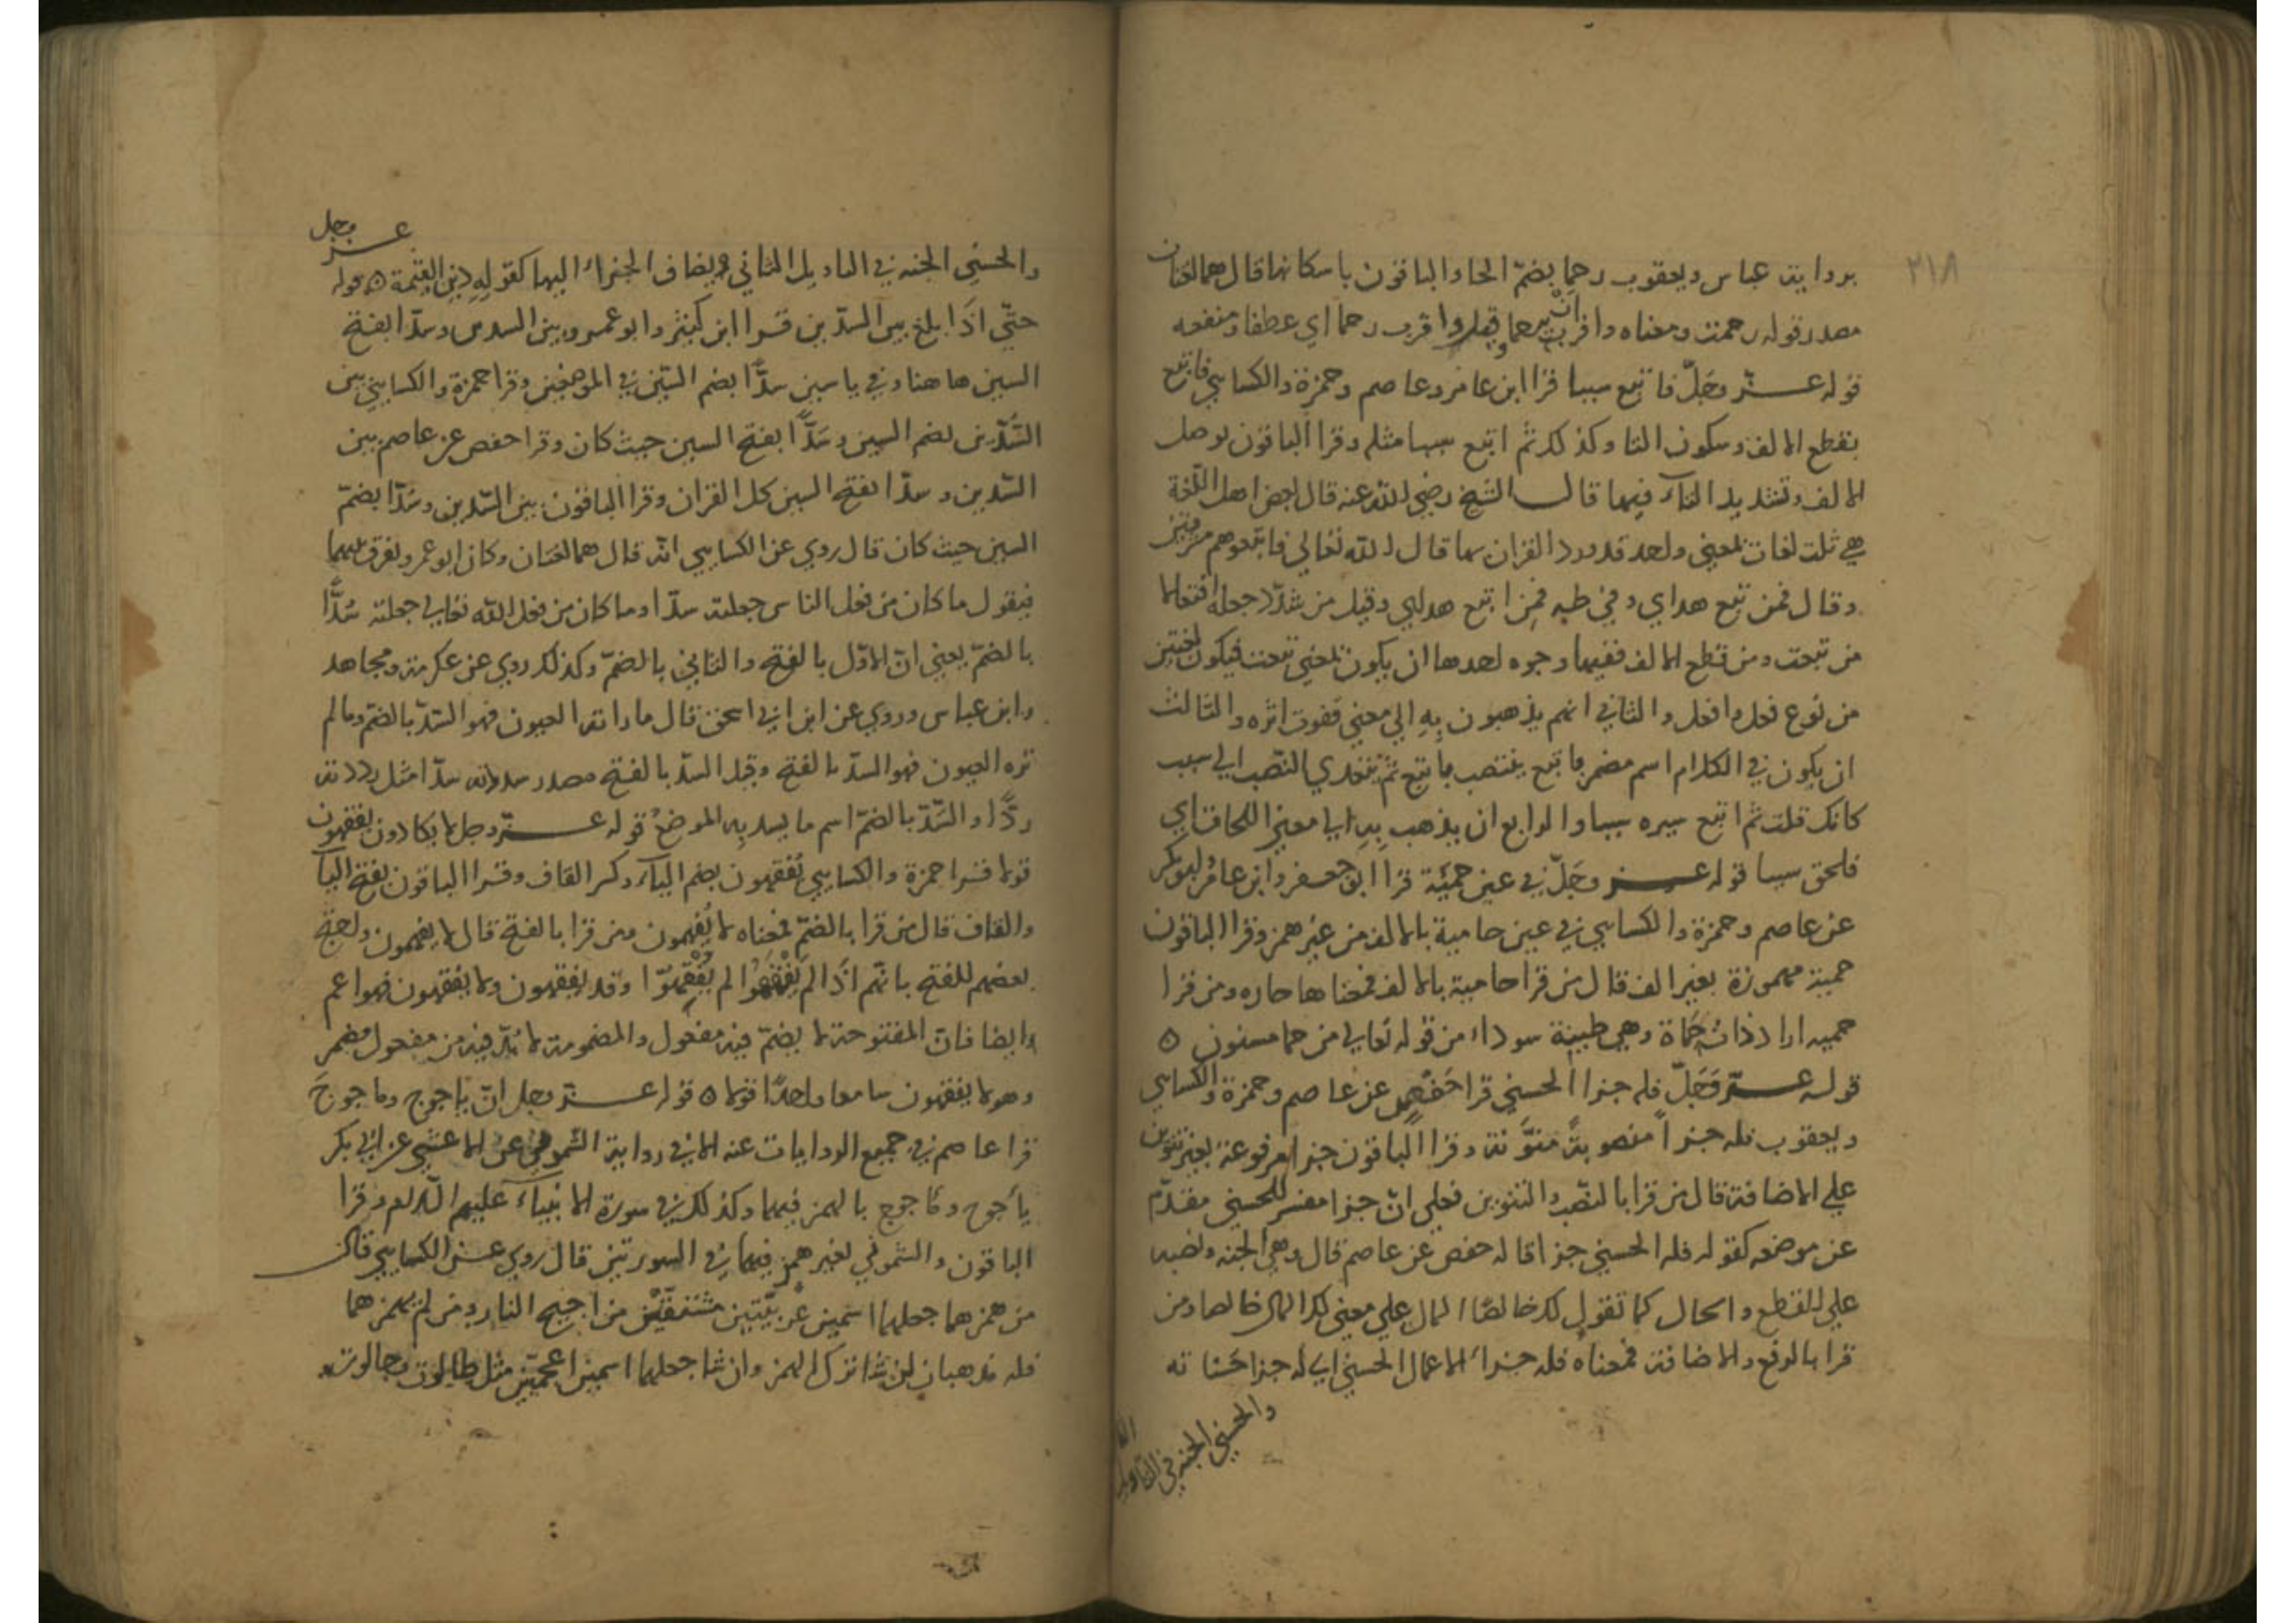 ٣١٨
برواية عباس ويعقوب رحما بضمّ الحا والباقون باسكانها قال هما لغتان
مصدر قوله رحمت ومعناه واقرب ان يرحما وقيل واقرب رحما اي عطفا ومنفعه
قوله عــز وجلّ فاتبع سببا قرا ابن عامر وعاصم وحمزة والكسايي فاتبع
بقطع الالف وسكون التا وكذلك ثم اتبع سببا مثله وقرا الباقون بوصل
الالف وتشديد التآء فيها قال الشيخ رضي الله عنه قال بعض اهل اللّغة
هي ثلث لغات بمعني واحد قد ورد القران بها قال الله تعالي فاتبعوهم مشرقين
وقال فمن تبع هداي وفي طه فمن اتبع هداي وقيل من شدّد جعله افتعالا
من تبعت ومن قطع الالف ففيها وجوه احدها ان يكون بمعني تبعت فيكون لغتين
من نوع فعل وافعل والثاني انهم يذهبون بِهِ الي معني قفوت اثره والثالث
ان يكون في الكلام اسم مضمر فاتبع ينتصب باتبع ثم يتعدي النّصب الي سبب
كانك قلت ثم اتبع سيره سببا والرابع ان يذهب بِهِ الي معني اللحاق اي
فلحق سببا قوله عــز وجَلّ في عين حمئة قرا ابو جعفر وابن عامر وابو بكر
عن عاصم وحمزة والكسايي في عين حامية بالالف من غير همز وقرا الباقون
حمية مهموزة بغير الف قال من قرا حامية بالالف فمعناها حاره ومن قرا
حميه اراد ذات حَماة وهي طينة سوداء من قوله تعالي من حما مسنون ه
قوله عــزّ وَجَلّ فله جزا الحسني قرا حَفْص عن عاصم وحمزة والكسايي
ويعقوب فله جزاً منصوبةً منوَّنة وقرا الباقون جزا مرفوعة بغير تنوين
علي الاضافة قال من قرا بالنّصب والتنوين فعلي انّ جزا مفسر للحسني مقدّم
عن موضعه كقوله فله الحسني جزا قاله حفص عن عاصم قال وهي الجنه ونصبه
علي القطع والحال كما تقول لك خالصًا المال علي معني لك المال خالصا ومن
قرا بالرفع والاضافة فمعناه فله جزاء الاعمال الحسني اي له جزا حَسَناته
والحسني الجنه في التاويل
عــز وجل
والحسني الجنه في التاويل الثاني ويضاف الجزاء اليها كقوله دين القيّمة ه قوله
حتّي اذَا بلغ بين السدّين قــرا ابن كثير وابو عمرو بين السدين وسدّا بفتح
السين ها هنا وفي ياسين سدًّا بضم السّين في الموضعين وقرا حمزة والكسايي بين
السُّدّين بضم السين وسَدًّا بفتح السين حيث كان وقرا حفص عن عاصم بين
السّدين وسدّا بفتح السين كل القران وقرا الباقون بين السّدين وسُدّا بضمّ
السين حيث كان قال روي عن الكسايي انّه قال هما لغتان وكان ابو عمرو يفرق بينهما
فيقول ما كان من فعل الناس جعلته سدّا وما كان من فعل الله تعالي جعلته سُدًّا
بالضمّ يعني انّ الاوّل بالفتح والثاني بالضمّ وكذلك روي عن عكرمة ومجاهد
وابن عباس وروي عن ابن ابي اسحق قال ما راته العيون فهو السّدّ بالضمّ وما لم
تره العيون فهو السدّ بالفتح وقيل السدّ بالفتح مصدر سددته سدّا مثل رددته
ردًّا والسّدّ بالضمّ اسم ما يسد بِهِ الموضع قوله عــزّ وجل لا يكادون يفقهون
قولا قــرا حمزة والكسايي يُفقهون بضم اليآء وكسر القاف وقــرا الباقون بفتح اليآ
والقاف قال من قرا بالضمّ فمعناه لا يُفهمون ومن قرا بالفتح قال لا يفهمون واحتج
بعضهم للفتح بانّهم اذَا لم يَفْقَهُوا لم يُفْقِهُوا وقد يفقهون ولا يُفقهون فهو اعم
وايضا فانّ المفتوحة لا يضمّ فيه مفعول والمضمومة لا بُدّ فيه من مفعول مضمر
وهو لا يفقهون سامعا واحدًا قولا ه قوله عــزّ وجل انّ ياجوج وماجوجَ
قرا عاصم في جميع الروايات عنه الا في رواية الشّموني عن الاعشي عن ابي بكر
يأجوج ومأجوج بالهمز فيهما وكذلك في سورة الانبيآء عليهم السّلم وقرا
الباقون والشّموني بغير همز فيهما في السورتين قال روي عــن الكسايي قال
من همزهما جعلهما اسمين عربيّتين مشتقّين من اجيج النار ومن لم يهمزهما
فله مذهبان ان شا ترك الهمز وان شا جعلهما اسمين اعجميّين مثل طالوت وجالوت